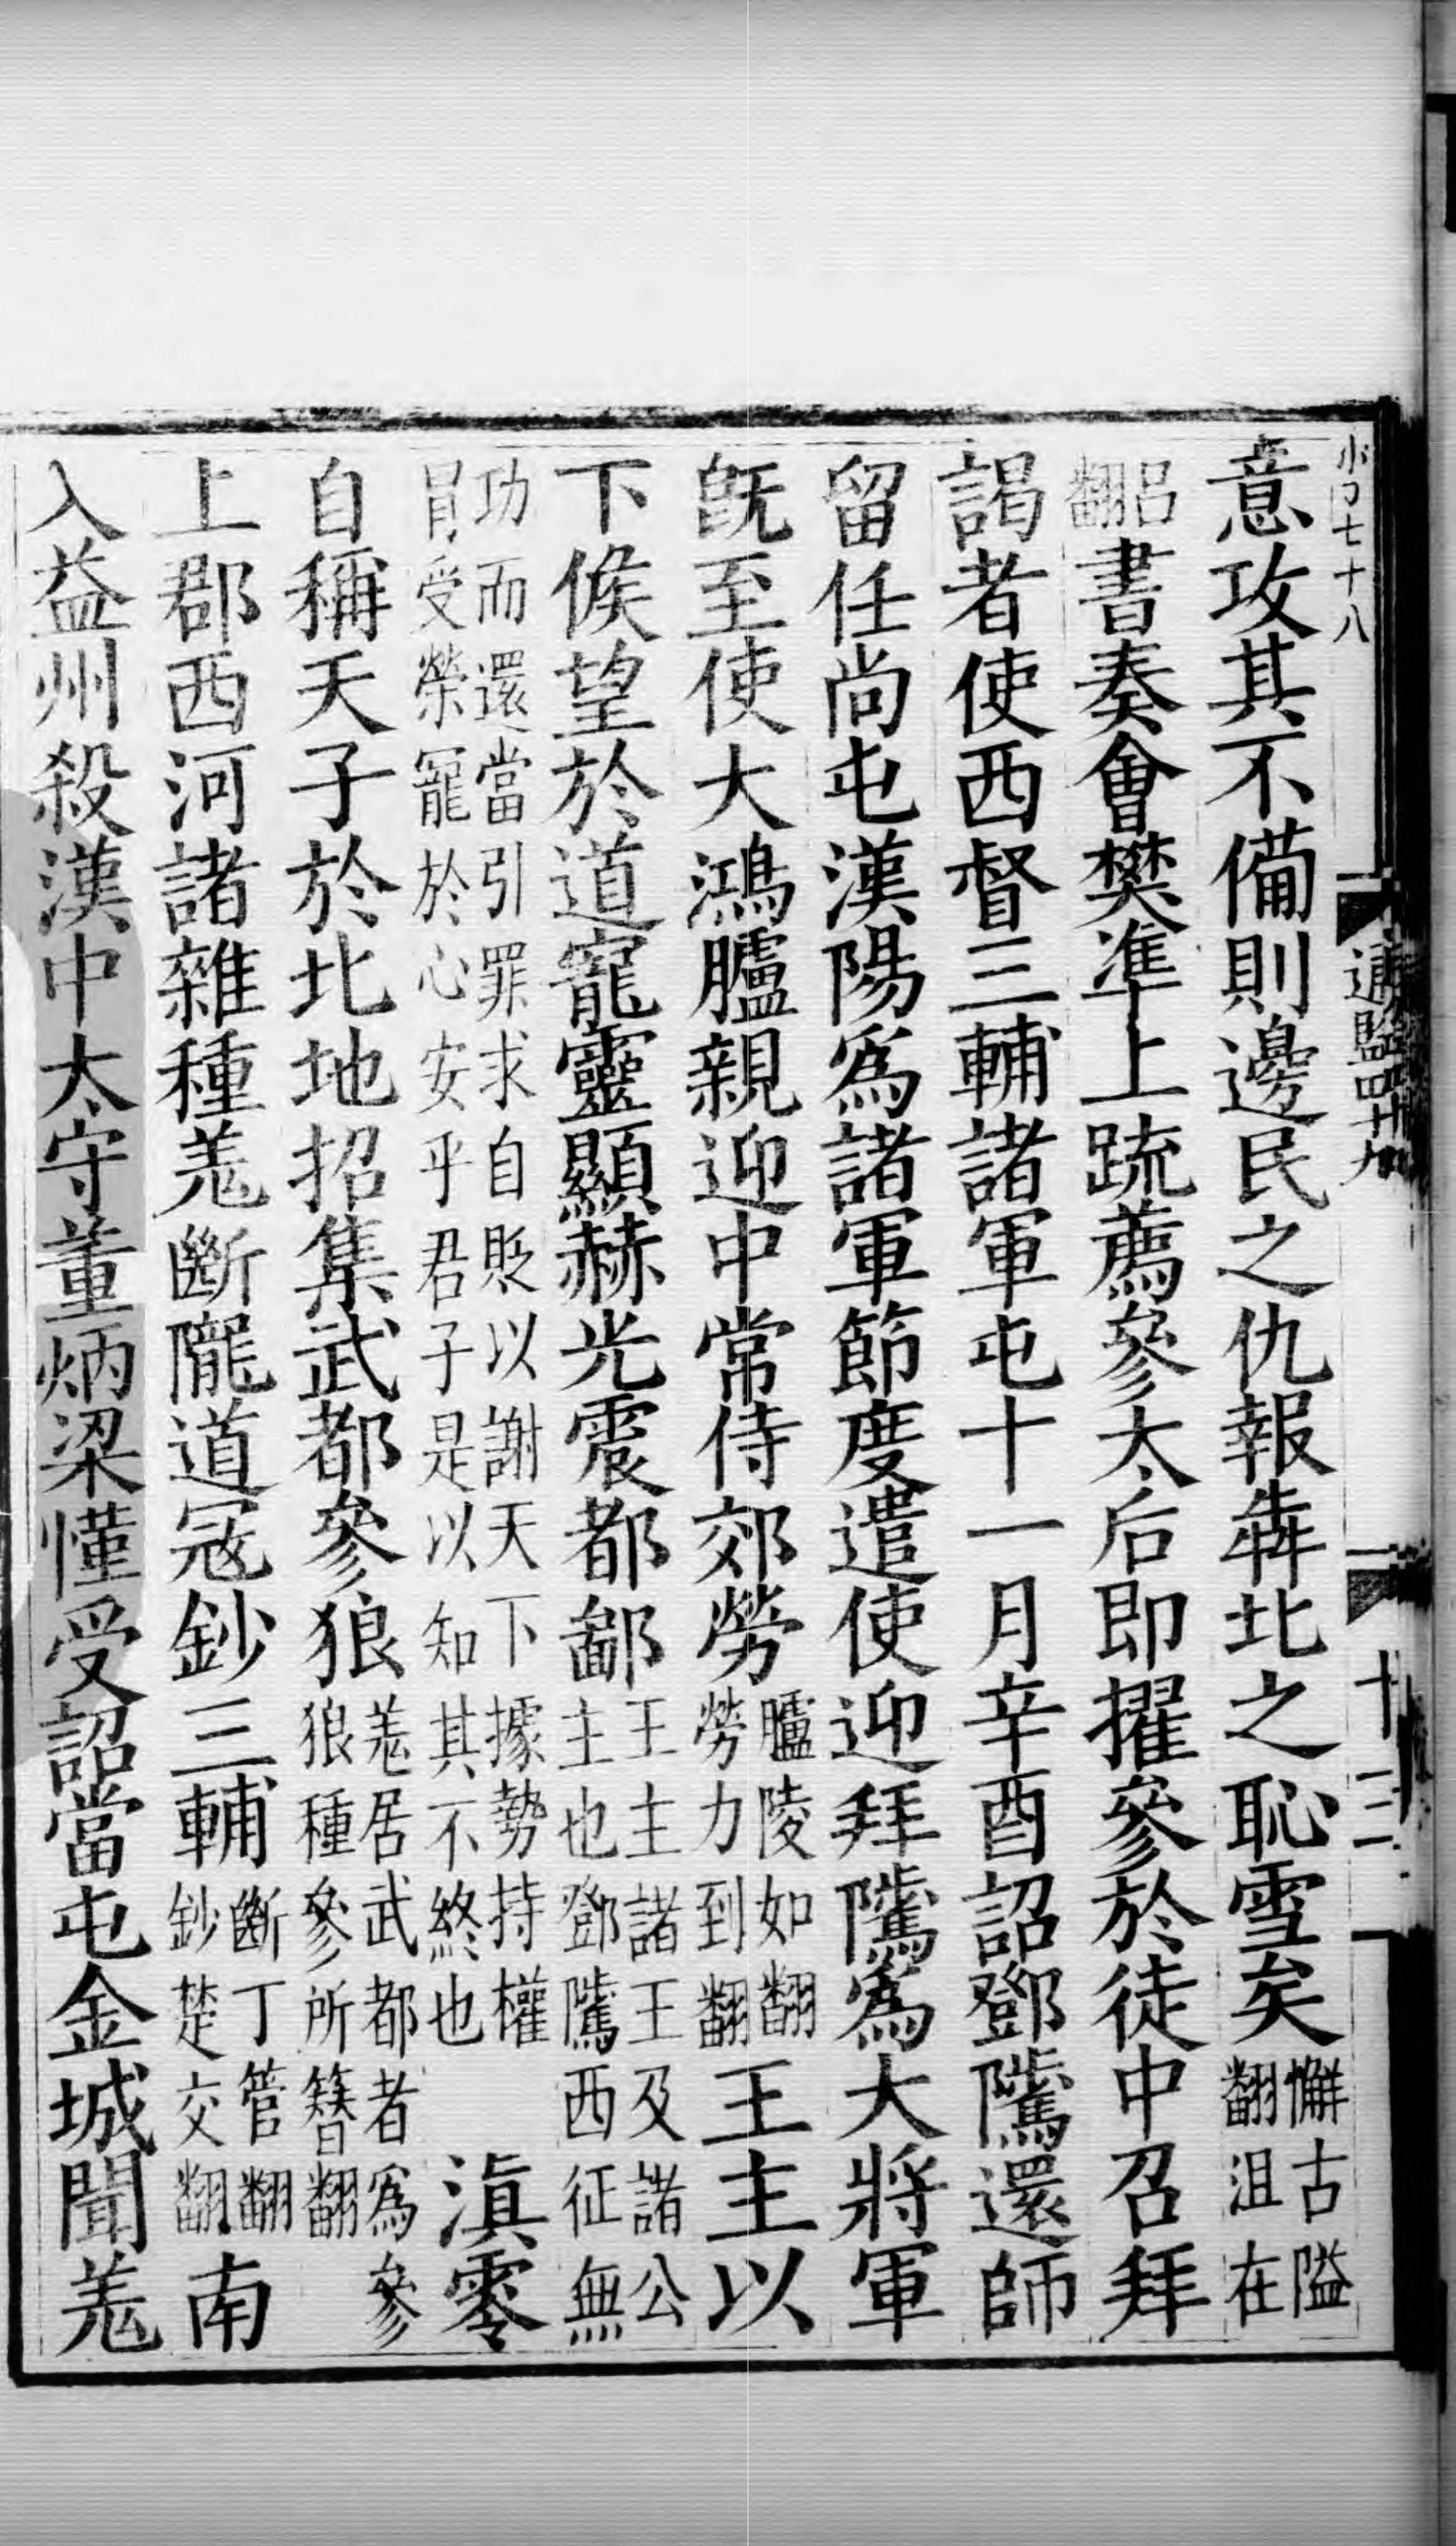 小刀七十八
通鑑四十九
十三
意攻其不備則邊民之仇報犇北之恥雪矣懈古隘翻沮在
呂翻書奏會樊準上疏薦參太后即擢參於徒中召拜
謁者使西督三輔諸軍屯十一月辛酉詔鄧隲還師
留任尚屯漢陽爲諸軍節度遣使迎拜隲爲大將軍
旣至使大鴻臚親迎中常侍郊勞臚陵如翻勞力到翻王主以
下候望於道寵靈顯赫光震都鄙王主諸王及諸公主也鄧隲西征無
功而還當引罪求自貶以謝天下據勢持權冐受榮寵於心安乎君子是以知其不終也滇零
自稱天子於北地招集武都參狼羗居武都者爲參狼種參所簮翻
上郡西河諸雜種羗斷隴道寇鈔三輔斷丁管翻鈔楚交翻南
入益州殺漢中太守董炳梁慬受詔當屯金城聞羗